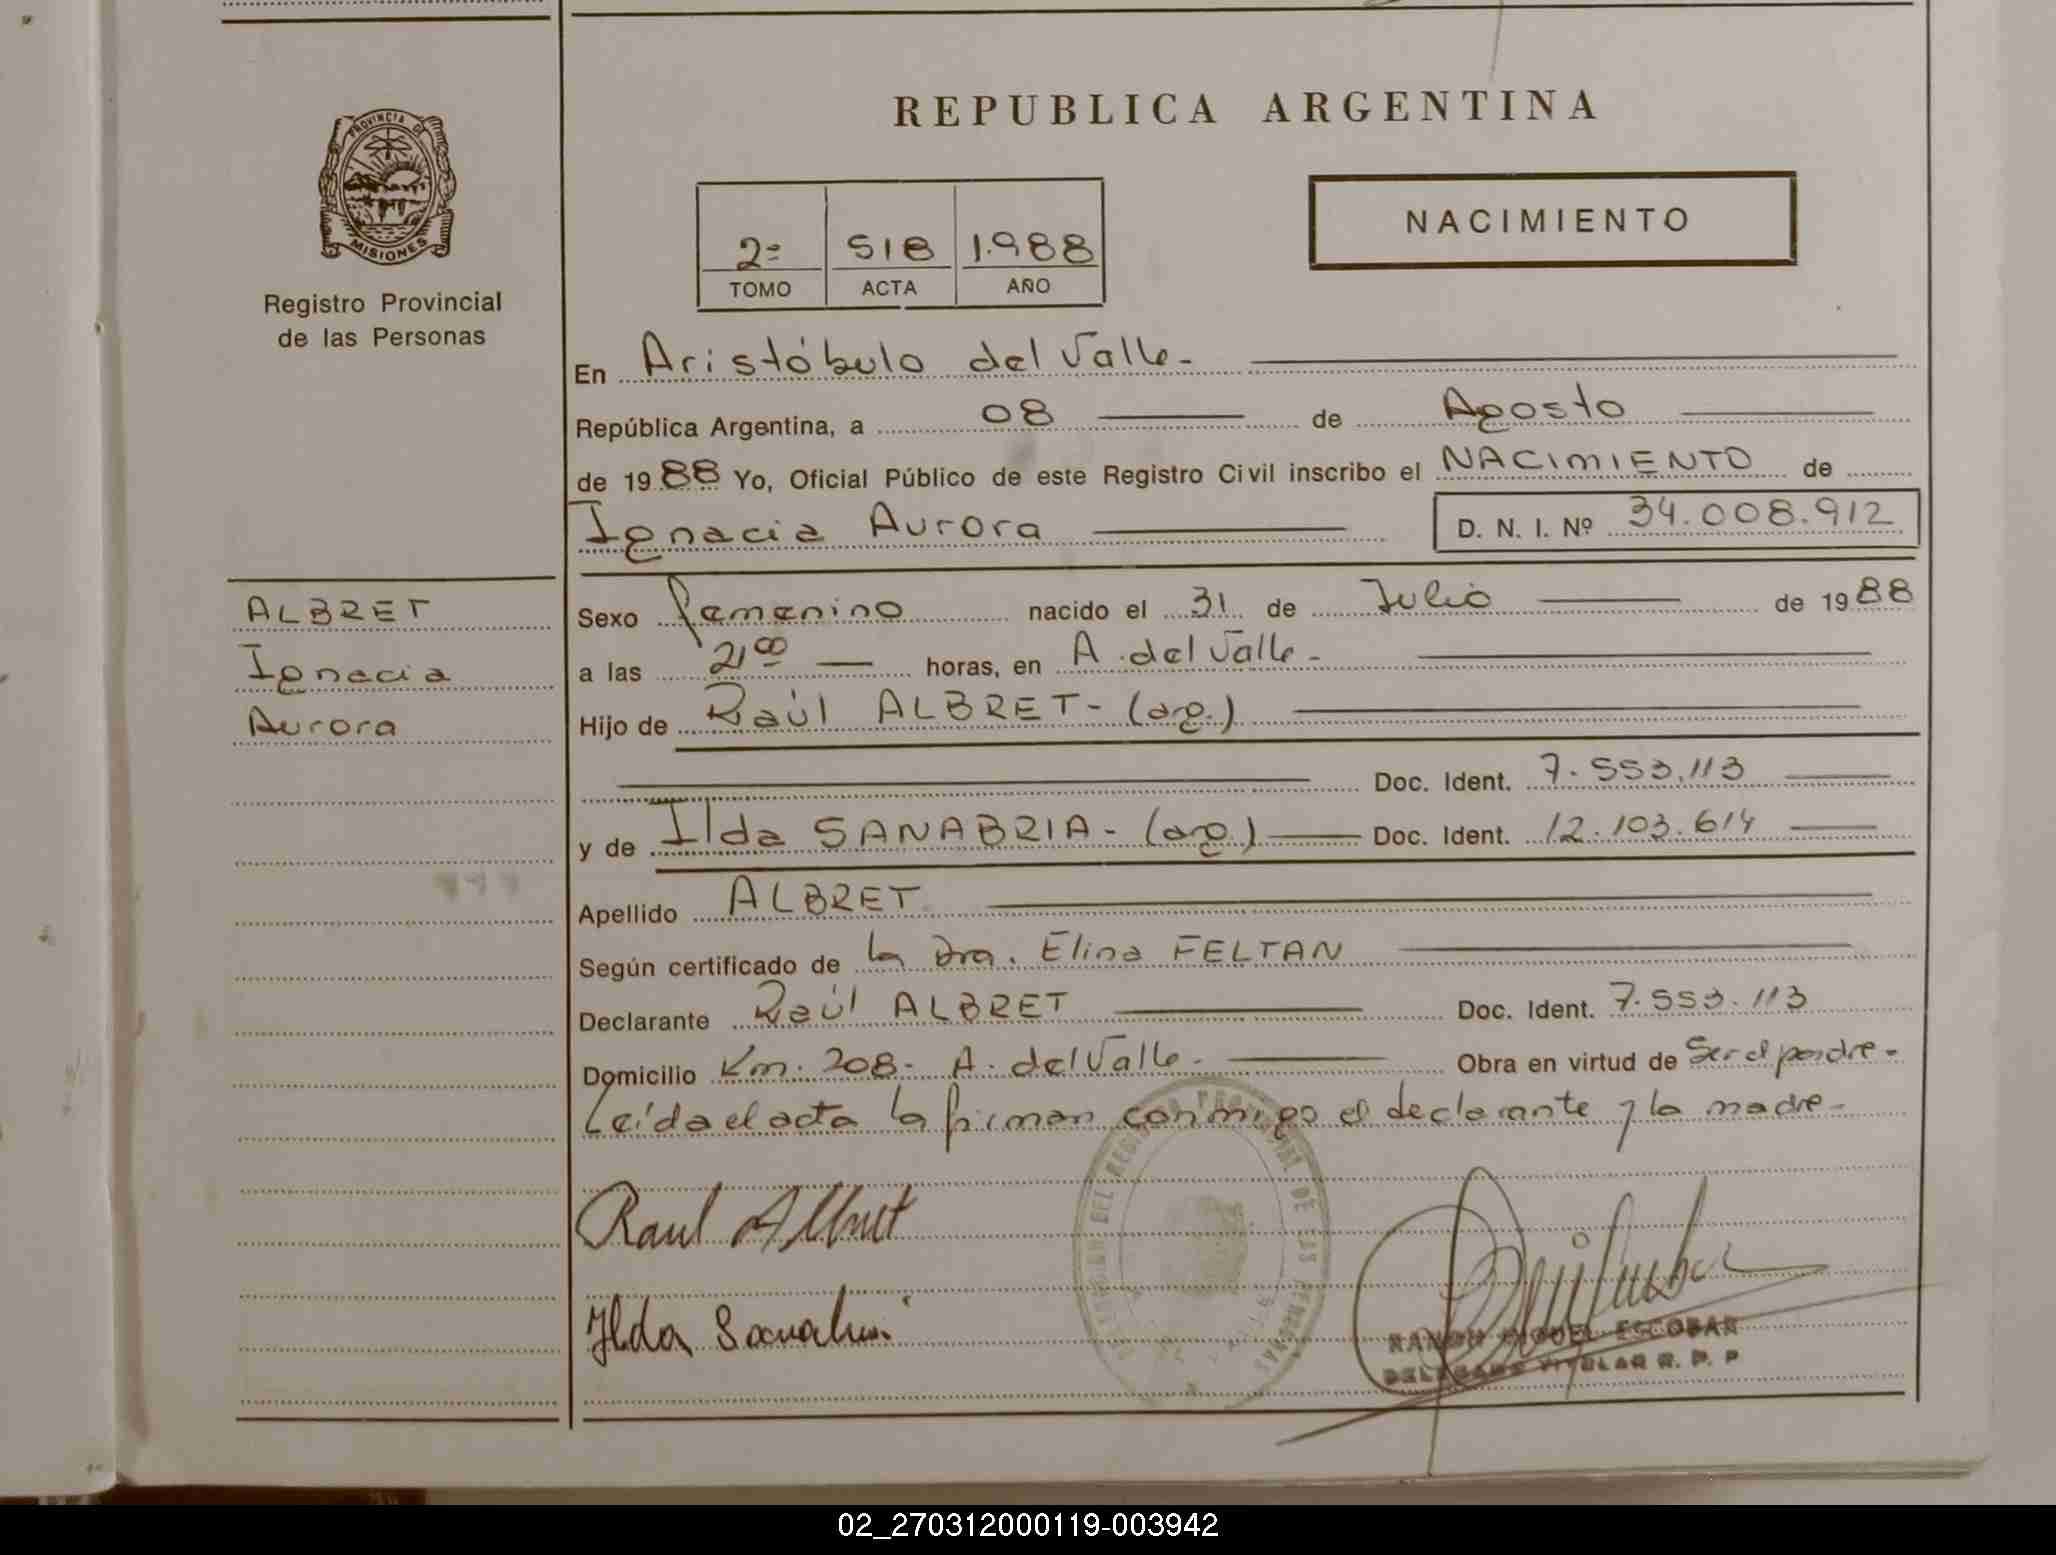 REPUBLICA ARGENTINA
PROVINCIA DE
MISIONES
Registro Provincial
de las Personas
2º 518 1.988
TOMO ACTA AÑO
NACIMIENTO
En Aristóbulo del Valle-
República Argentina, a 08 de Agosto
de 1988 Yo, Oficial Público de este Registro Civil inscribo el NACIMIENTO de
Ignacia Aurora D. N. I. Nº 34.008.912
ALBRET
Ignacia
Aurora
Sexo femenino nacido el 31 de Julio de 1988
a las 21 00 horas, en A. del Valle-
Hijo de Raúl ALBRET- (arg.)
Doc. Ident. 7.553.113
y de Ilda SANABRIA- (arg.) Doc. Ident. 12.103.614
Apellido ALBRET
Según certificado de la Dra. Elina FELTAN
Declarante Raúl ALBRET Doc. Ident. 7.553.113
Domicilio Km. 208- A. del Valle- Obra en virtud de Ser el padre-
Leída el acta la firman conmigo el declarante y la madre-
Raul Albret
Ilda Sanabria
RAMON MIGUEL ESCOBAR
DELEGADO TITULAR R. P. P
02_270312000119-003942